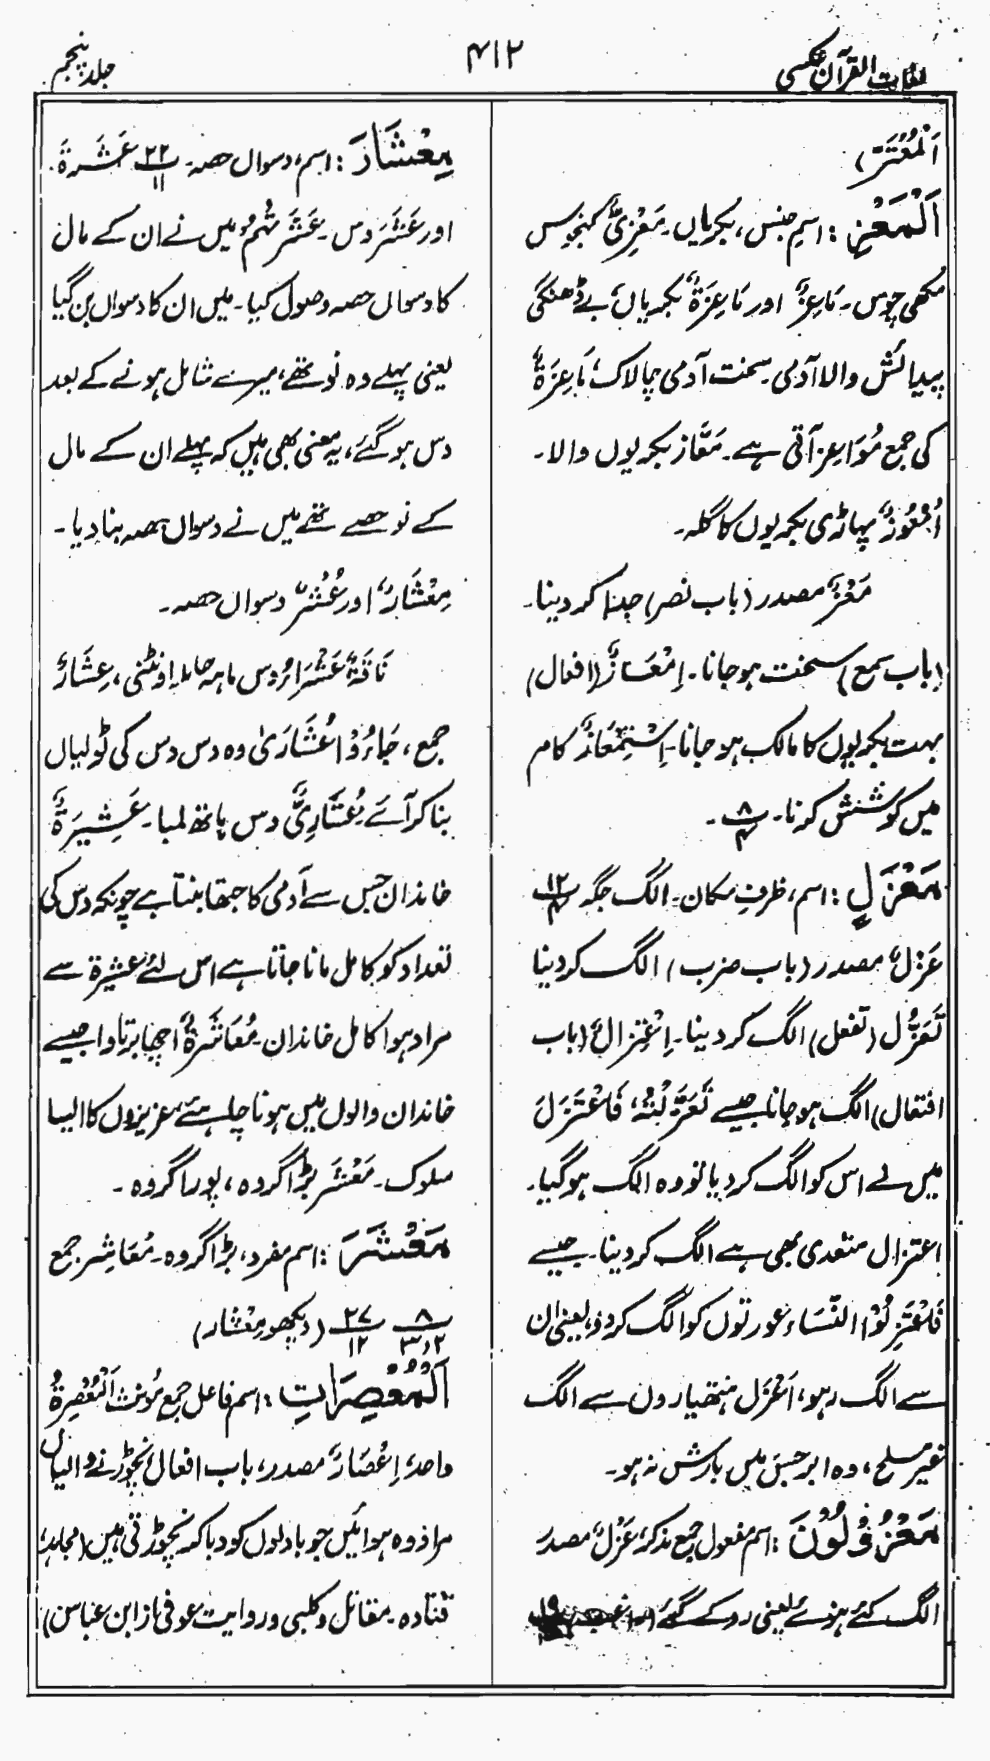 لغات القرآن عکسی
۴۱۲
جلد پنجم
اَلْمُعْتَرَّ،
اَلْمَعْزِ: اسمِ جنس، بکریاں۔ مَعْزِیٌّ کنجوس
مکھی چوس۔ مَاعِزٌ اور مَاعِزَۃٌ بکریاں، بے ڈھنگی
پیدائش والا آدمی۔ سخت آدمی چالاک، مَاعِزَۃٌ
کی جمع مَوَاعِز آتی ہے۔ مَعَّاز بکریوں والا۔
اُمْعُوْزٌ پہاڑی بکریوں کا گلہ۔
مَعْزٌ مصدر (باب نصر) جدا کر دینا۔
(باب سمع) سخت ہو جانا۔ اِمْعَازٌ (افعال)
بہت بکریوں کا مالک ہو جانا۔ اِسْتِمْعَازٌ کام
میں کوشش کرنا۔ ۸/۴۔
مَعْزِلٍ: اسم، ظرفِ مکان۔ الگ جگہ ۱۲/۴
عَزْلٌ مصدر (باب ضرب) الگ کر دینا
تَعَزُّل (تفعل) الگ کر دینا۔ اِعْتِزَالٌ (باب
افتعال) الگ ہو جانا جیسے تَعَزَّلْتُہٗ، فَاعْتَزَلَ
میں نے اس کو الگ کر دیا تو وہ الگ ہو گیا۔
اعتزال متعدی بھی ہے الگ کر دینا۔ جیسے
فَاعْتَزِلُوْا النِّسَاءَ عورتوں کو الگ کر دو، یعنی ان
سے الگ رہو، اَعْزَل ہتھیاروں سے الگ
غیر مسلح، وہ ابر جس میں بارش نہ ہو۔
مَعْزُوْلُوْنَ: اسم مفعول جمع مذکر، عَزْلٌ مصدر
الگ کئے ہوئے یعنی روکے گئے
مِعْشَارَ: اسم، دسواں حصہ۔ ۲۲/۱۱ عَشَرَۃَ۔
اور عَشَرَ دس۔ عَشَرْتُہُمْ میں نے ان کے مال
کا دسواں حصہ وصول کیا۔ میں ان کا دسواں بن گیا
یعنی پہلے وہ نو تھے، میرے شامل ہونے کے بعد
دس ہو گئے، یہ معنی بھی ہیں کہ پہلے ان کے مال
کے نو حصے تھے میں نے دسواں حصہ بنا دیا۔
مِعْشَارٌ اور عُشْرٌ دسواں حصہ۔
نَاقَۃٌ عُشَرَاءُ دس ماہہ حاملہ اونٹنی، عِشَارٌ
جمع، جَاءُوْا عُشَارَیٰ وہ دس دس کی ٹولیاں
بنا کر آئے عُشَارِیٌّ دس ہاتھ لمبا۔ عَشِیْرَۃٌ
خاندان جس سے آدمی کا جتھا بنتا ہے چونکہ دس کی
تعداد کو کامل مانا جاتا ہے اس لئے عشیرۃ سے
مراد ہوا کامل خاندان۔ مُعَاشَرَۃٌ اچھا برتاوا جیسے
خاندان والوں میں ہونا چاہئے عزیزوں کا ایسا
سلوک۔ مَعْشَر بڑا گروہ، پورا گروہ۔
مَعْشَرَ: اسم مفرد، بڑا گروہ۔ مَعَاشِر جمع
۸/۲،۳ ۲۷/۱۲ (دیکھو مِعْشَار)
اَلْمُعْصِرَاتِ: اسم فاعل جمع مؤنث اَلْمُعْصِرَۃُ
واحد، اِعْصَارٌ مصدر، باب افعال نچوڑنے والیاں
مراد وہ ہوائیں جو بادلوں کو دبا کر نچوڑتی ہیں (مجاہد،
قتادہ۔ مقاتل و کلبی و روایت عوفی از ابن عباس)